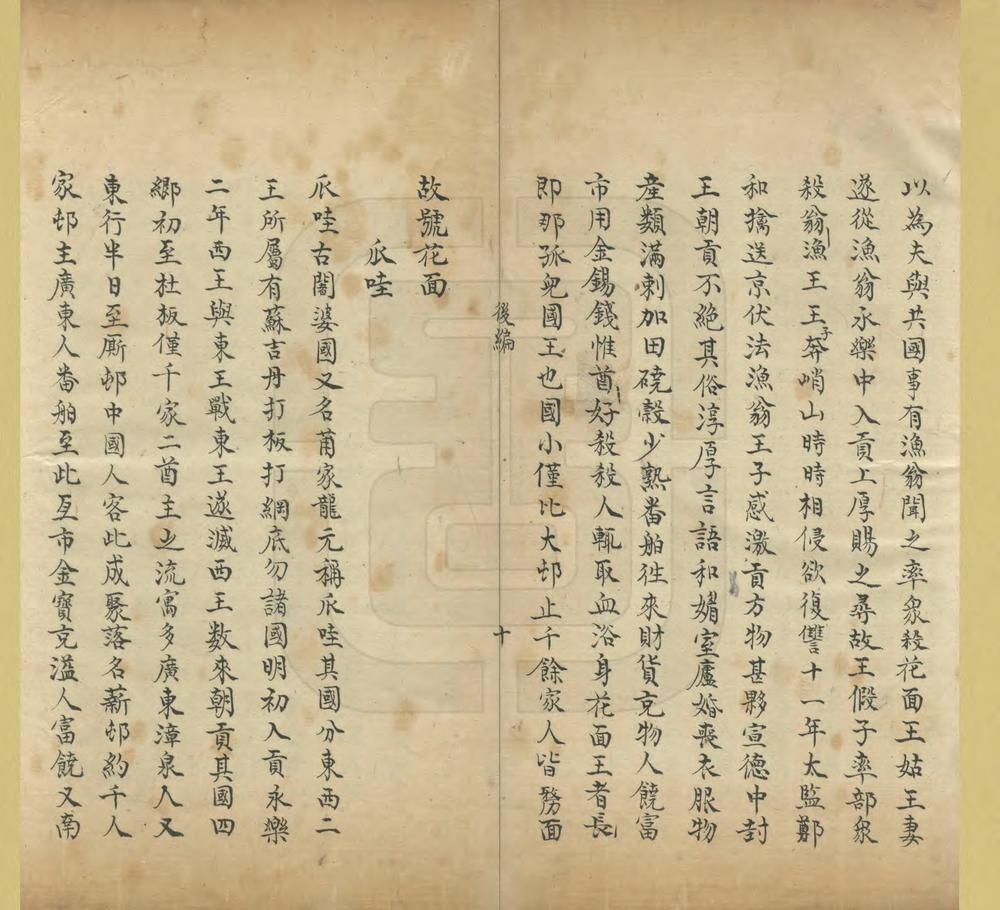 以為夫與共國事有漁翁聞之率衆殺花面王姑王妻
遂從漁翁永樂中入貢上厚賜之尋故王假子率部衆
殺翁漁王王子奔哨山時時相侵欲復讐十一年太監鄭
和擒送京伏法漁翁王子感激貢方物甚夥宣德中封
王朝貢不絶其俗淳厚言語和媚室廬婚喪衣服物
產類滿剌加田磽穀少熟番舶徃來財貨充物人饒富
市用金錫錢惟酋好殺殺人輒取血浴身花面王者長
即那孤兒國王也國小僅比大邨止千餘家人皆剺面
後編
十
故號花面
爪哇
爪哇古闍婆國又名莆家龍元稱爪哇其國分東西二
王所屬有蘇吉丹打板打網底勿諸國明初入貢永樂
二年西王與東王戰東王遂滅西王数來朝貢其國四
鄉初至杜板僅千家二酋主之流寓多廣東漳泉人又
東行半日至厮邨中國人客此成聚落名薪邨約千人
家邨主廣東人番舶至此互市金寶充溢人富饒又南